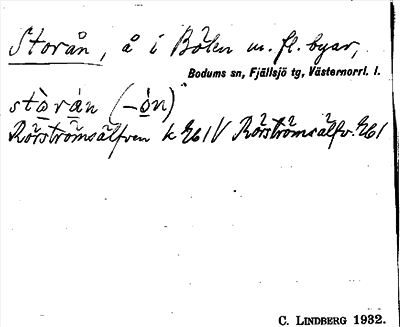 Storån, å i Bölen m. fl. byar,
Bodums sn, Fjällsjö tg, Västernorrl. l.
stòrán (-ón)
Rörströmsälfven k Rörströmsälfv.
C. LINDBERG 1932.